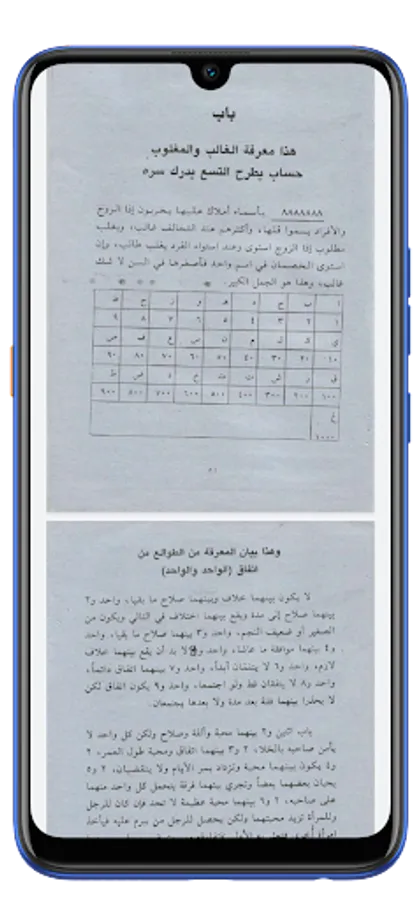 باب
هذا معرفة الغالب والمغلوب
حساب يطرح التسع يدرك سره
بأسماء أملاك عليها يحزبون إذا الزوج
والأفراد يسموا قلها، وأكثرهم عند التخالف غالب، ويغلب
مطلوب إذا الزوج استوى وعند استواء الفرد يغلب طالب، وإن
استوى الخصمان في اسم واحد فأصغرها في السن لا شك
غالب، وهذا هو الجمل الكبير
ا ب ج د هـ و ز ح ط
١ ٢ ٣ ٤ ٥ ٦ ٧ ٨ ٩
ي ك ل م ن س ع ف ص
١٠ ٢٠ ٣٠ ٤٠ ٥٠ ٦٠ ٧٠ ٨٠ ٩٠
ق ر ش ت ث خ ذ ض ظ
١٠٠ ٢٠٠ ٣٠٠ ٤٠٠ ٥٠٠ ٦٠٠ ٧٠٠ ٨٠٠ ٩٠٠
غ
١٠٠٠
وهذا بيان المعرفة من الطوالع من
اتفاق (الواحد والواحد)
لا يكون بينهما خلاف وبينهما صلاح ما بقيا، واحد و٢
بينهما صلاح إلى مدة ويقع بينهما اختلاف في التالي ويكون من
الصغير أو ضعيف النجم، واحد و٣ بينهما صلاح ما بقيا، واحد
و٤ بينهما موافقة ما عاشا، واحد و٥ لا بد أن يقع بينهما خلاف
لازم، واحد و٦ لا يتفقان أبداً، واحد و٧ بينهما اتفاق دائماً،
واحد و٨ لا يتفقان قط ولو اجتمعا، واحد و٩ يكون اتفاق لكن
لا يحلزا بينهما فتنة بعد مدة ولا بعدها يجتمعان.
باب اثنين و٢ بينهما محبة وألفة وصلاح ولكن كل واحد لا
يأمن صاحبه بالخلاء، ٢ و٣ بينهما اتفاق ومحبة طول العمر، ٢
و٤ يكون بينهما محبة وتزداد بمر الأيام ولا ينقضيان، ٢ و٥
يحبان بعضهما بعضاً وتجري بينهما فرقة يتحمل كل واحد منهما
على صاحبه، ٢ و٦ بينهما محبة عظيمة لا تحد فإن كان للرجل
وللمرأة تزيد محبتهما ولكن يحصل للرجل من يبرم عليه فيأخذ
امرأة أخرى